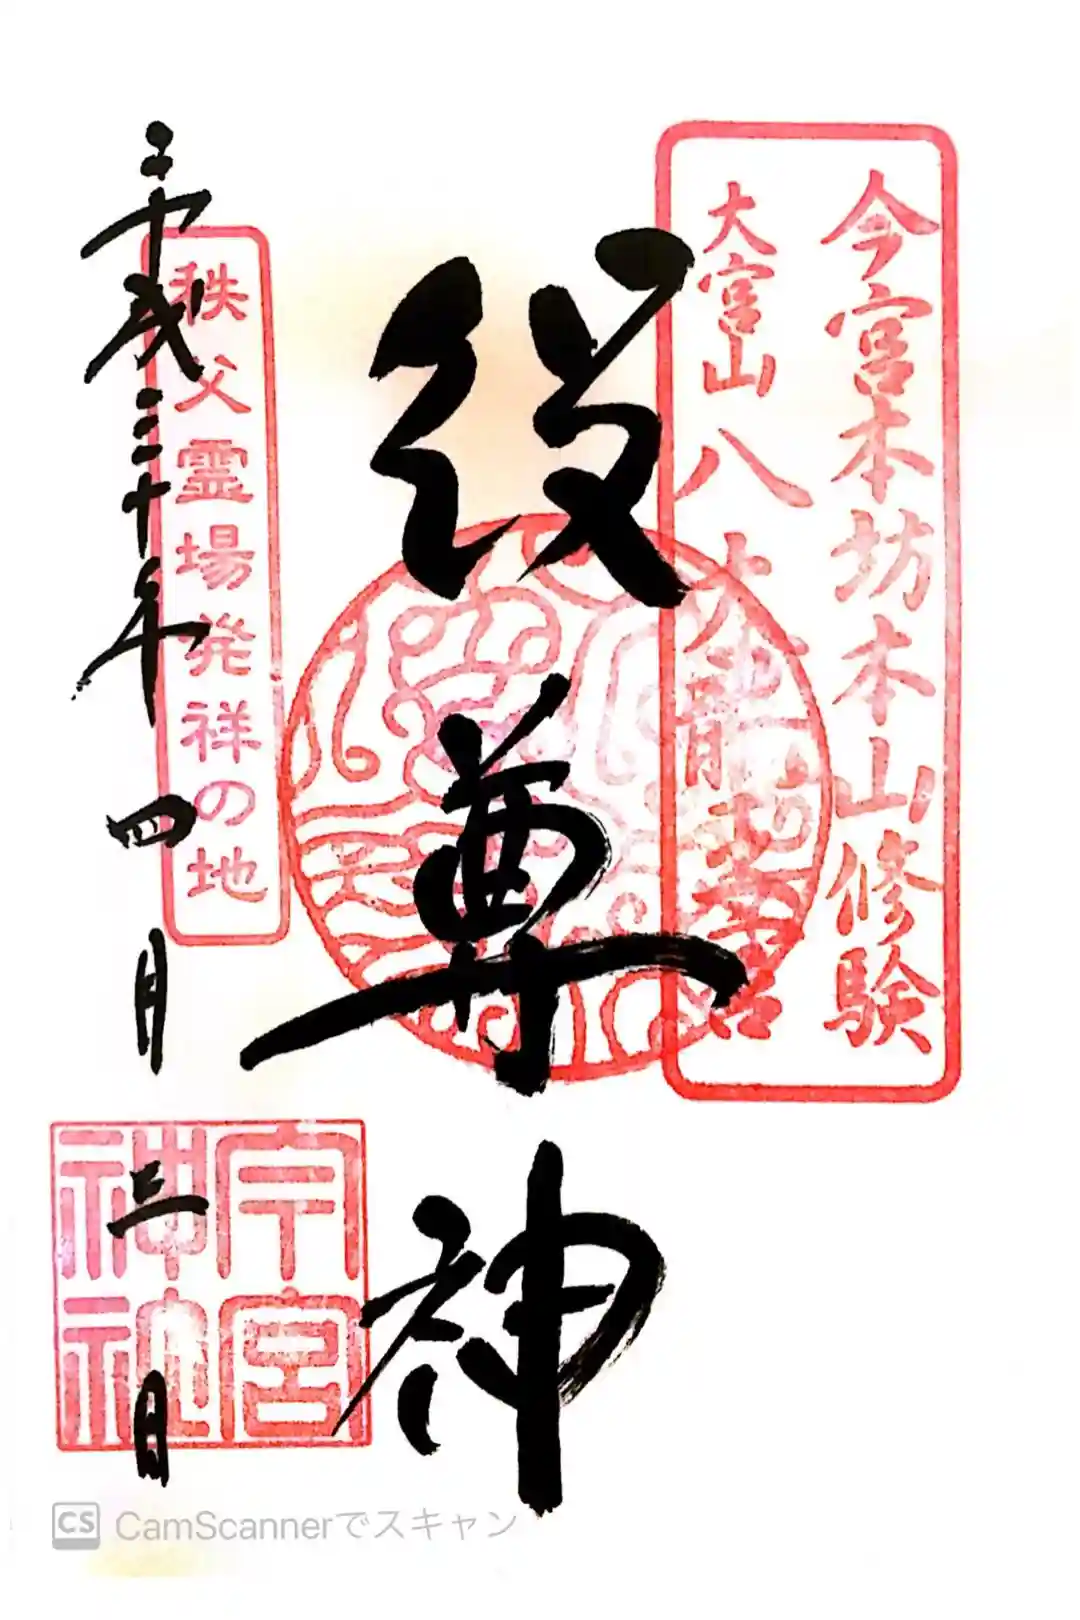 今宮本坊本山修験
大宮山八大龍王宮
役尊神
秩父霊場発祥の地
平成三十年四月三日
今宮
神社
CS CamScannerでスキャン